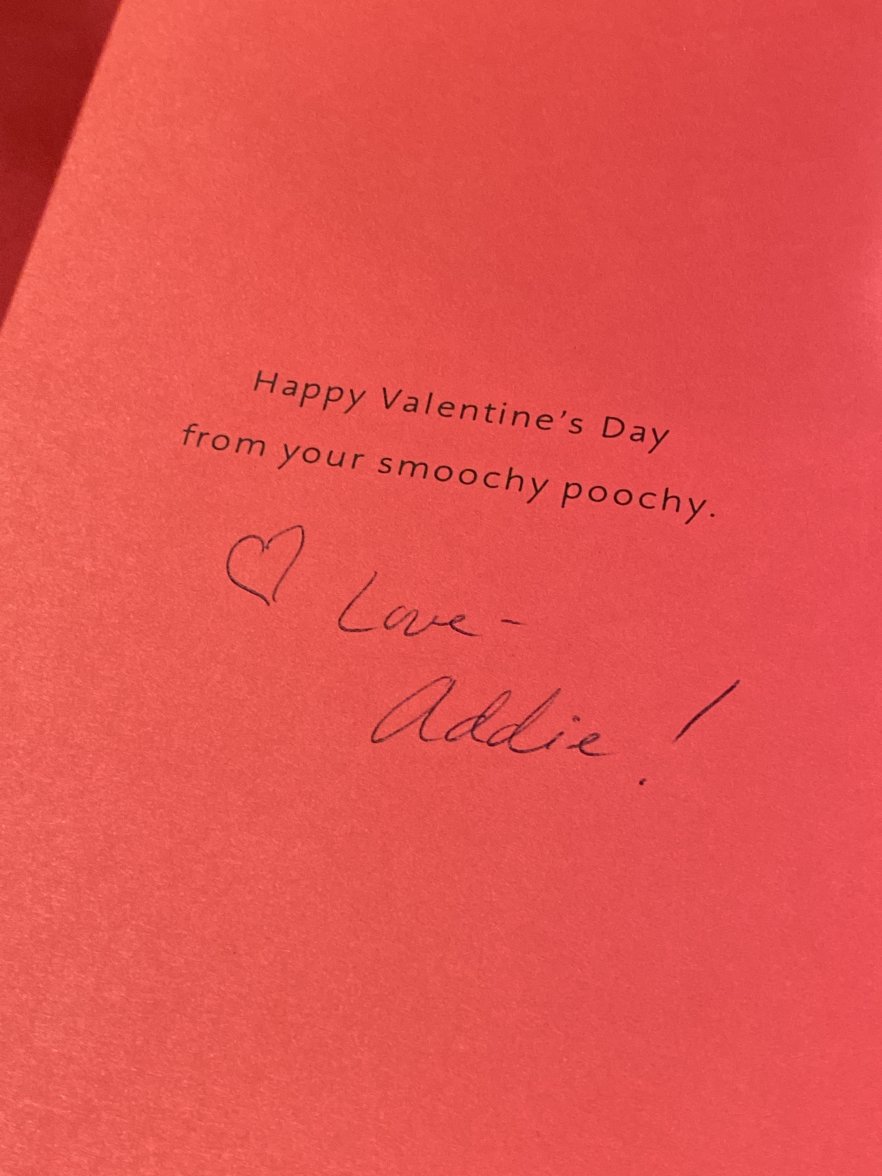 Happy Valentine's Day
from your smoochy poochy.
♡ Love-
Addie!